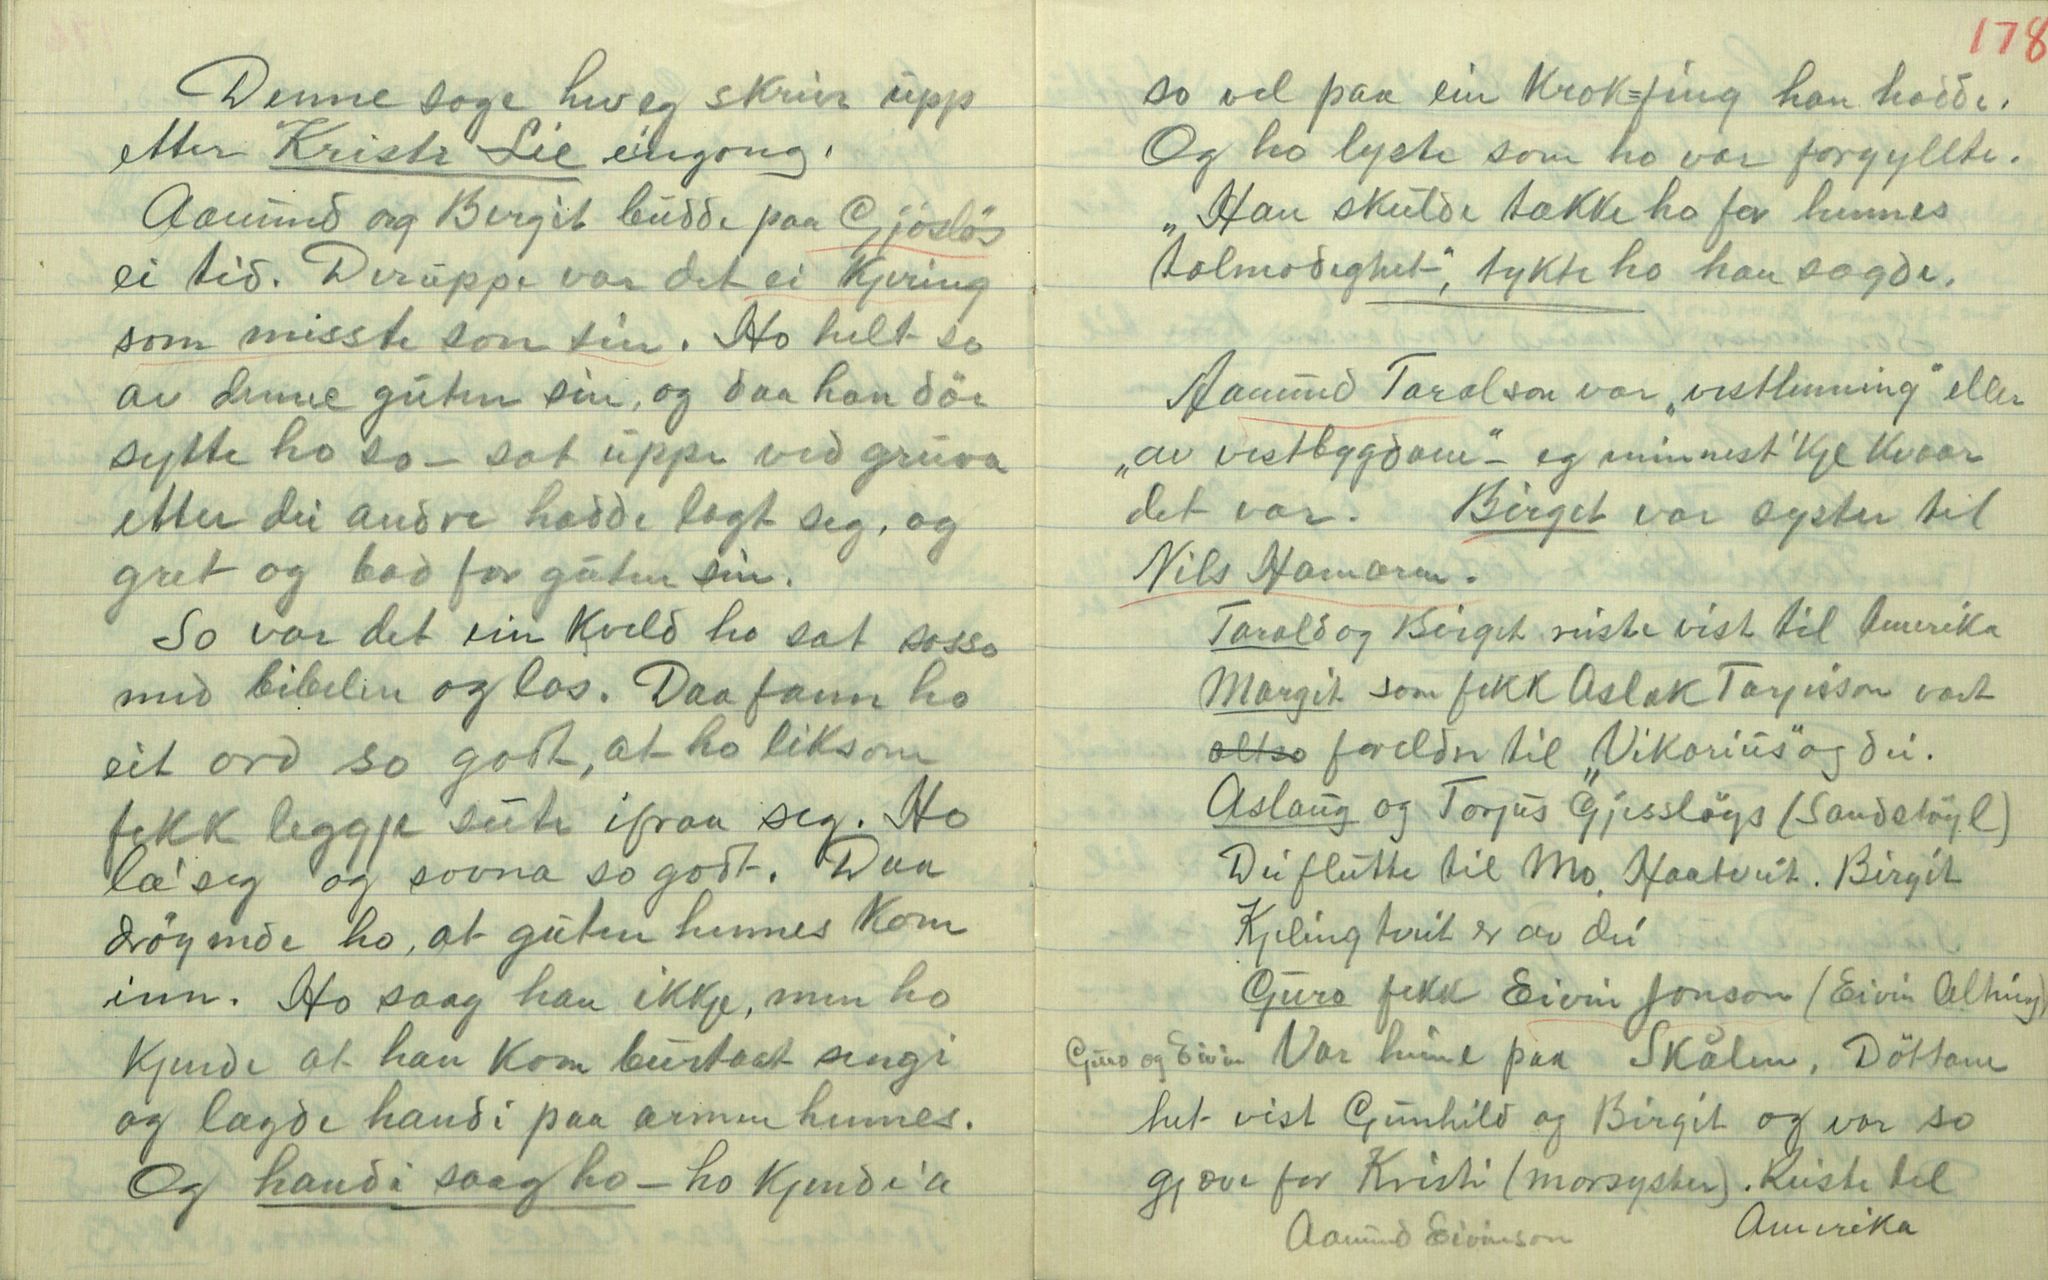 Denne soge hev eg skrive upp
etter Kristi Lie eingong.
Aamund og Bergit budde paa Gjøsløs
ei tid. Deruppe var det ei Kjering
som misste son sin. Ho helt so
av denne guten sin, og daa han dör
sytte ho so – sat uppe ved gruva
etter dei andre hadde lagt seg, og
gret og bad for guten sin.
So var det ein Kveld ho sat sosso
med bibelen og las. Daa fann ho
eit ord so godt, at ho liksom
fekk leggje suti ifraa seg. Ho
la' seg og sovna so godt. Daa
dröymde ho, at guten hennes Kom
inn. Ho saag han ikkje, men ho
Kjende at han Kom burtaat sengi
og lagde handi paa armen hennes.
Og handi saag ho – ho Kjende 'a
178
so vel paa ein Krok=fing han hadde.
Og ho lyste som ho var forgyllte.
„Han skulde takke ho for hennes
tolmodeghet", tykte ho han sagde.
Aamund Taralson var „vestlenning" eller
„av vestbygdom" – eg minnest 'kje Kvaar
det var. Birget var syster til
Nils Hamaren.
Tarald og Birget reiste vist til Amerika
Margit som fekk Aslak Tarjeisson vart
altso foreldre til „Vikarius" og dei.
Aslaug og Torjus Gjesslöys (Sandstöyl)
Dei flutte til Mo. Haatveit. Birgit
Kjelingtveit er av dei
Guro fekk Eivin Jonson (Eivin Alting)
Guro og Eivin Var heime paa Skålen. Döttane
het vist Gunhild og Birgit og var so
gjæve for Kristi (morsyster). Reiste til
Amerika
Aamund Eivinson